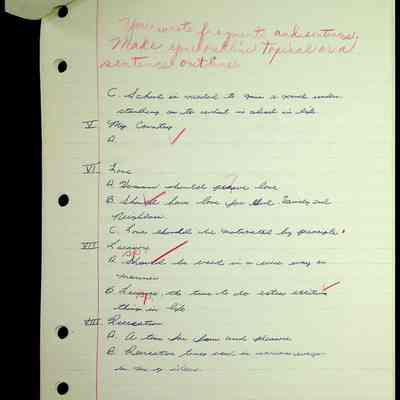 You wrote fragments and sentences.
Make your outline Topical or a
sentence outline
C. School is needed to give a good under-
standing as to what is ahead in life.
V My Country
A.
VI Love
A. Human should love
B. Should have love for God, Family and
Neighbor.
C. Love should be motivated by principle.
VII
A. Should be used in a wise way or
manner
B. the time to do extra exciting
things in life
VIII Recreation
A. A time for fun and pleasure
B. Recreation used in various ways